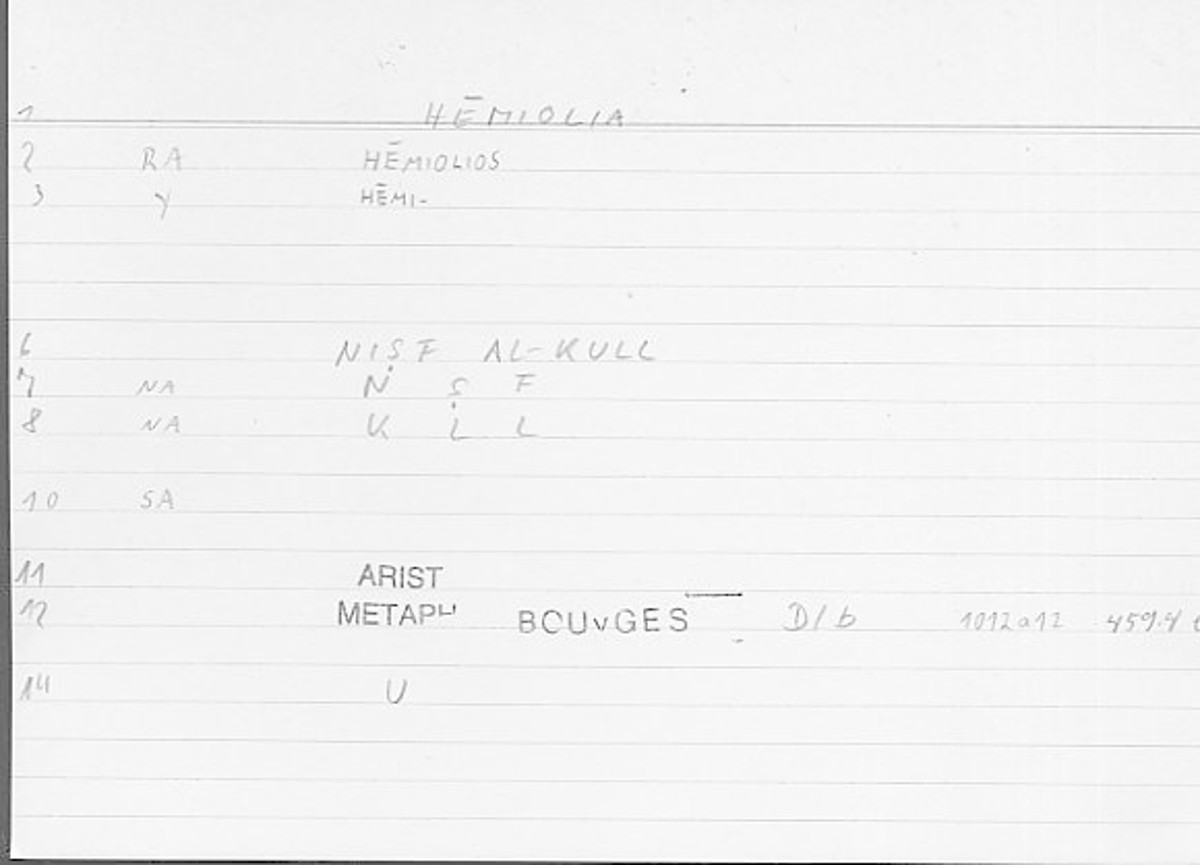 1 HĒMIOLIA
2 RA HĒMIOLIOS
3 Y HĒMI-
6 NIṢF AL-KULL
7 NA N Ṣ F
8 NA K L L
10 SA
11 ARIST
12 METAPH BOUYGES D/b 1012a12 459.4
14 U